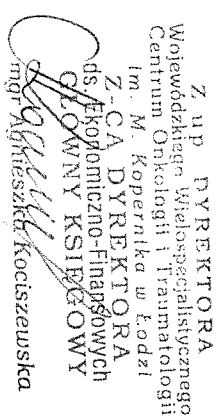 Z up DYREKTORA
Wojewódzkiego Wielospecjalistycznego
Centrum Onkologii i Traumatologii
im. M. Kopernika w Łodzi
Z-CA DYREKTORA
ds. Ekonomiczno-Finansowych
GŁÓWNY KSIĘGOWY
mgr Agnieszka Kociszewska